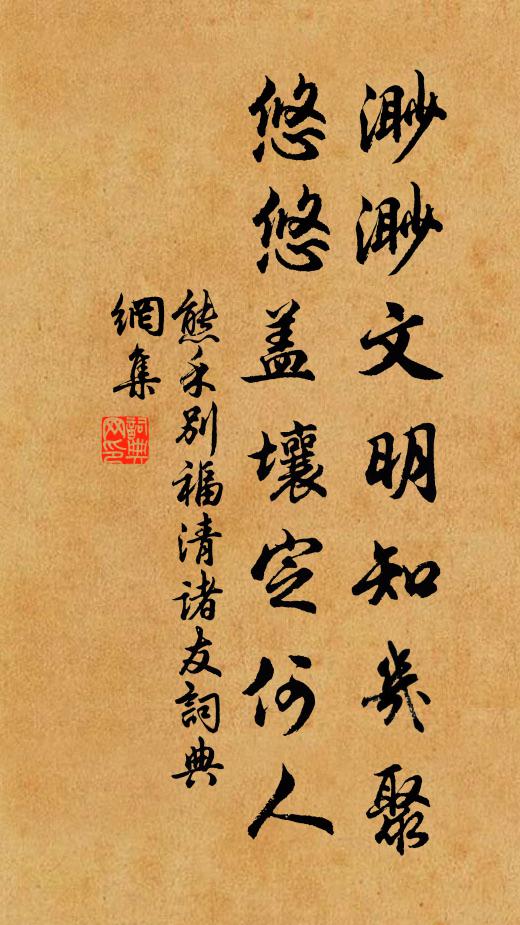 渺渺文明知几聚
悠悠盖壤定何人
熊禾别福清诸友詞典
網集
詞典
网印